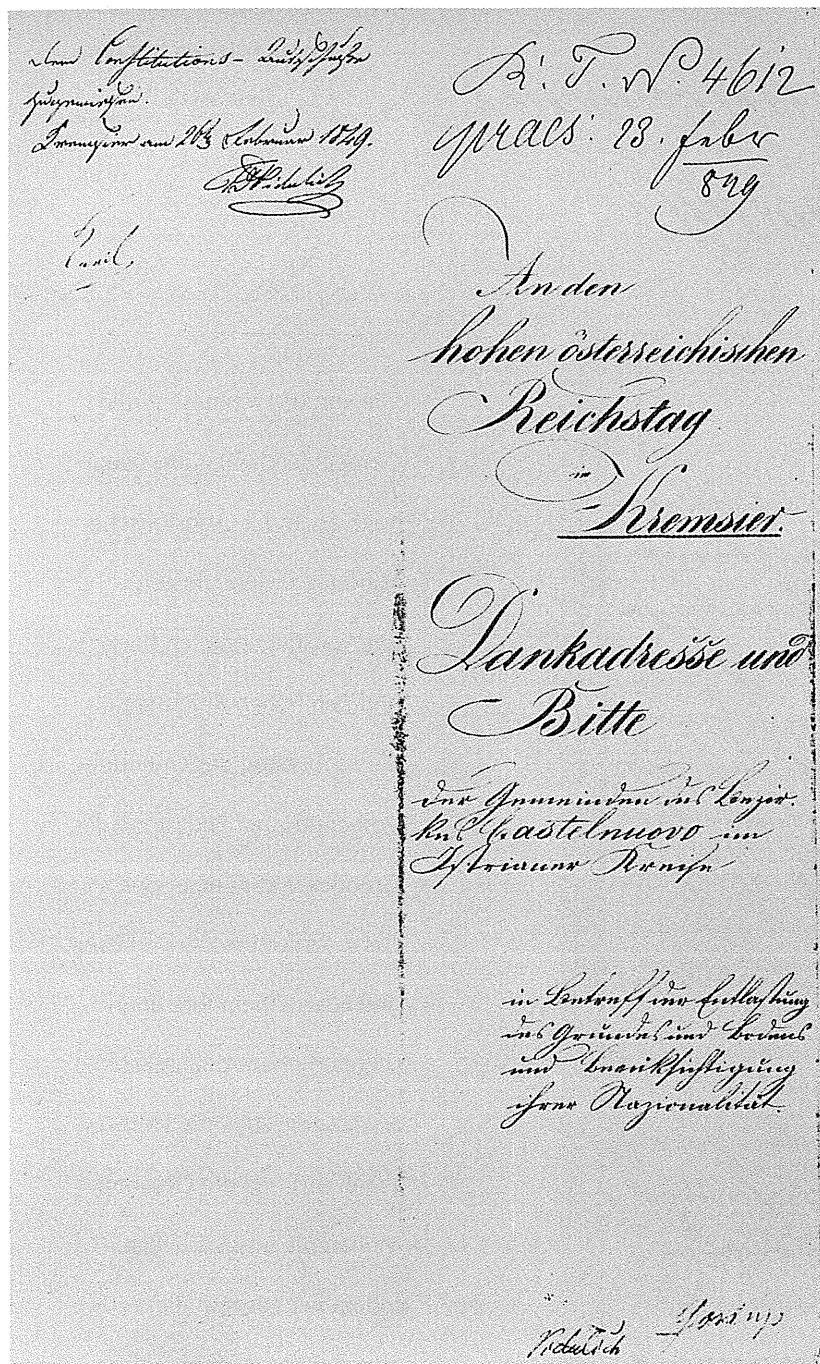 Dem Constitutions-Ausschuße
zugewiesen.
Kremsier am 26/2 Februar 1849.
R. T. N. 4612
praes: 23. Febr
849
An den
hohen österreichischen
Reichstag
in
Kremsier.
Dankadresse und
Bitte
der Gemeinden des Bezir-
kes Castelnuovo im
Istrianer Kreise
in Betreff der Entlastung
des Grundes und Bodens
und Berüksichtigung
ihrer Nazionalität.